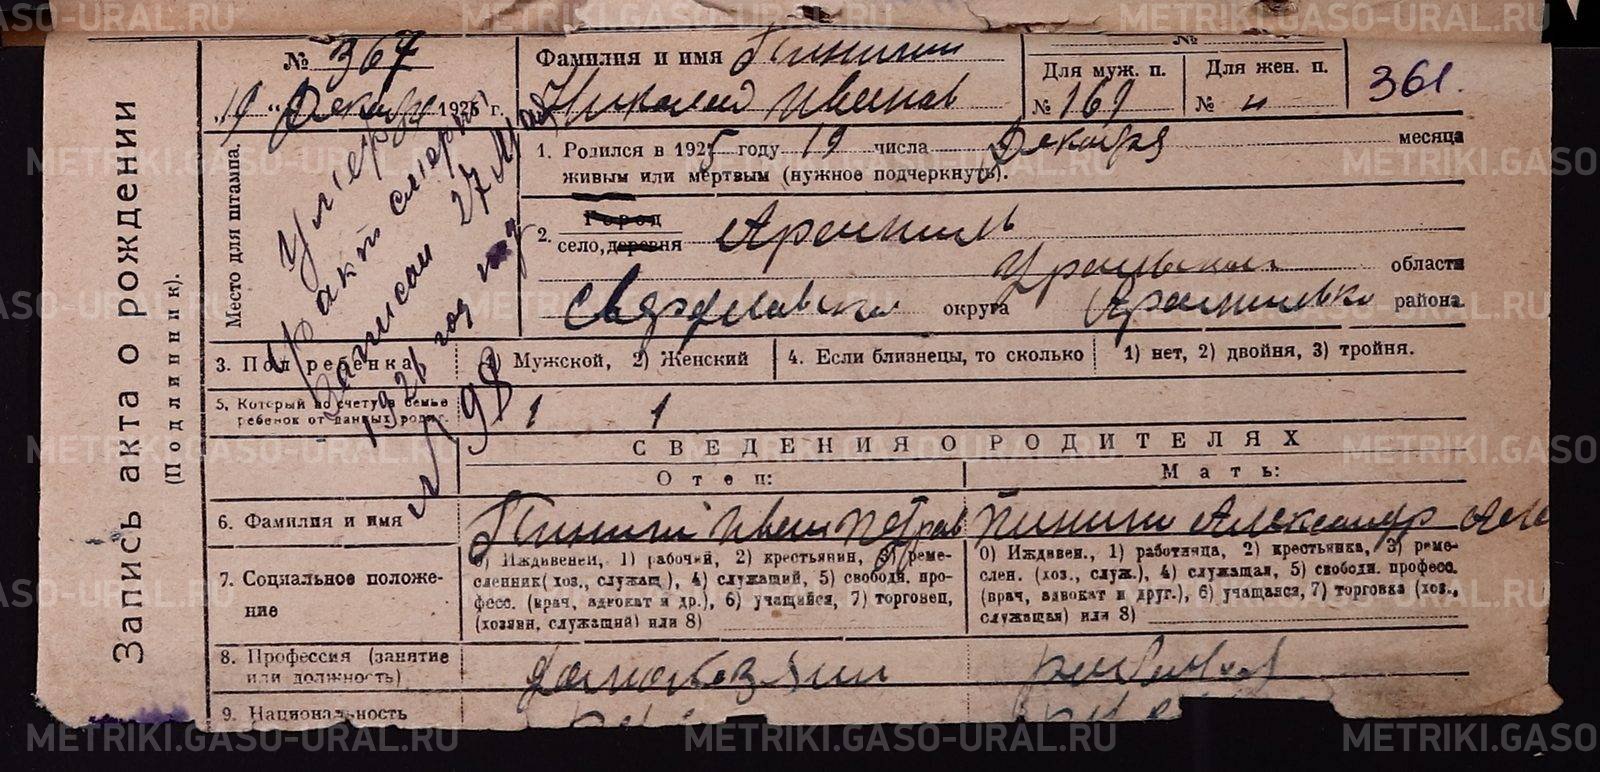 METRIKI.GASO-URAL.RU
Запись акта о рождении
(Подлинник).
Место для штампа.
№ 367
"19" Декабря 1925 г.
Умер
акт смерти
записан 27 Мая
1926 год
№ 98
Фамилия и имя Пинигин
Николай Иванов
№
Для муж. п.
№ 161
Для жен. п.
№ "
361.
1. Родился в 1925 году 19 числа Декабря месяца
живым или мертвым (нужное подчеркнуть).
2. Город
село, деревня Арамиль
Уральской области
Свердловско округа Арамильско района
3. Пол ребенка 1) Мужской, 2) Женский
4. Если близнецы, то сколько 1) нет, 2) двойня, 3) тройня.
5. Который по счету в семье
ребенок от данных родит. 1 1
СВЕДЕНИЯ О РОДИТЕЛЯХ
Отец: Мать:
6. Фамилия и имя Пинигин Иван Петров Пинигин Александр
7. Социальное положение
0) Иждивенец, 1) рабочий, 2) крестьянин, 3) ремесленник (хоз., служащ.), 4) служащий, 5) свободн. професс. (врач, адвокат и др.), 6) учащийся, 7) торговец, (хозяин, служащий) или 8)
0) Иждивен., 1) работница, 2) крестьянка, 3) ремеслен. (хоз., служ.), 4) служащая, 5) свободн. професс. (врач, адвокат и друг.), 6) учащаяся, 7) торговка (хоз., служащая) или 8)
8. Профессия (занятие
или должность)
9. Национальность